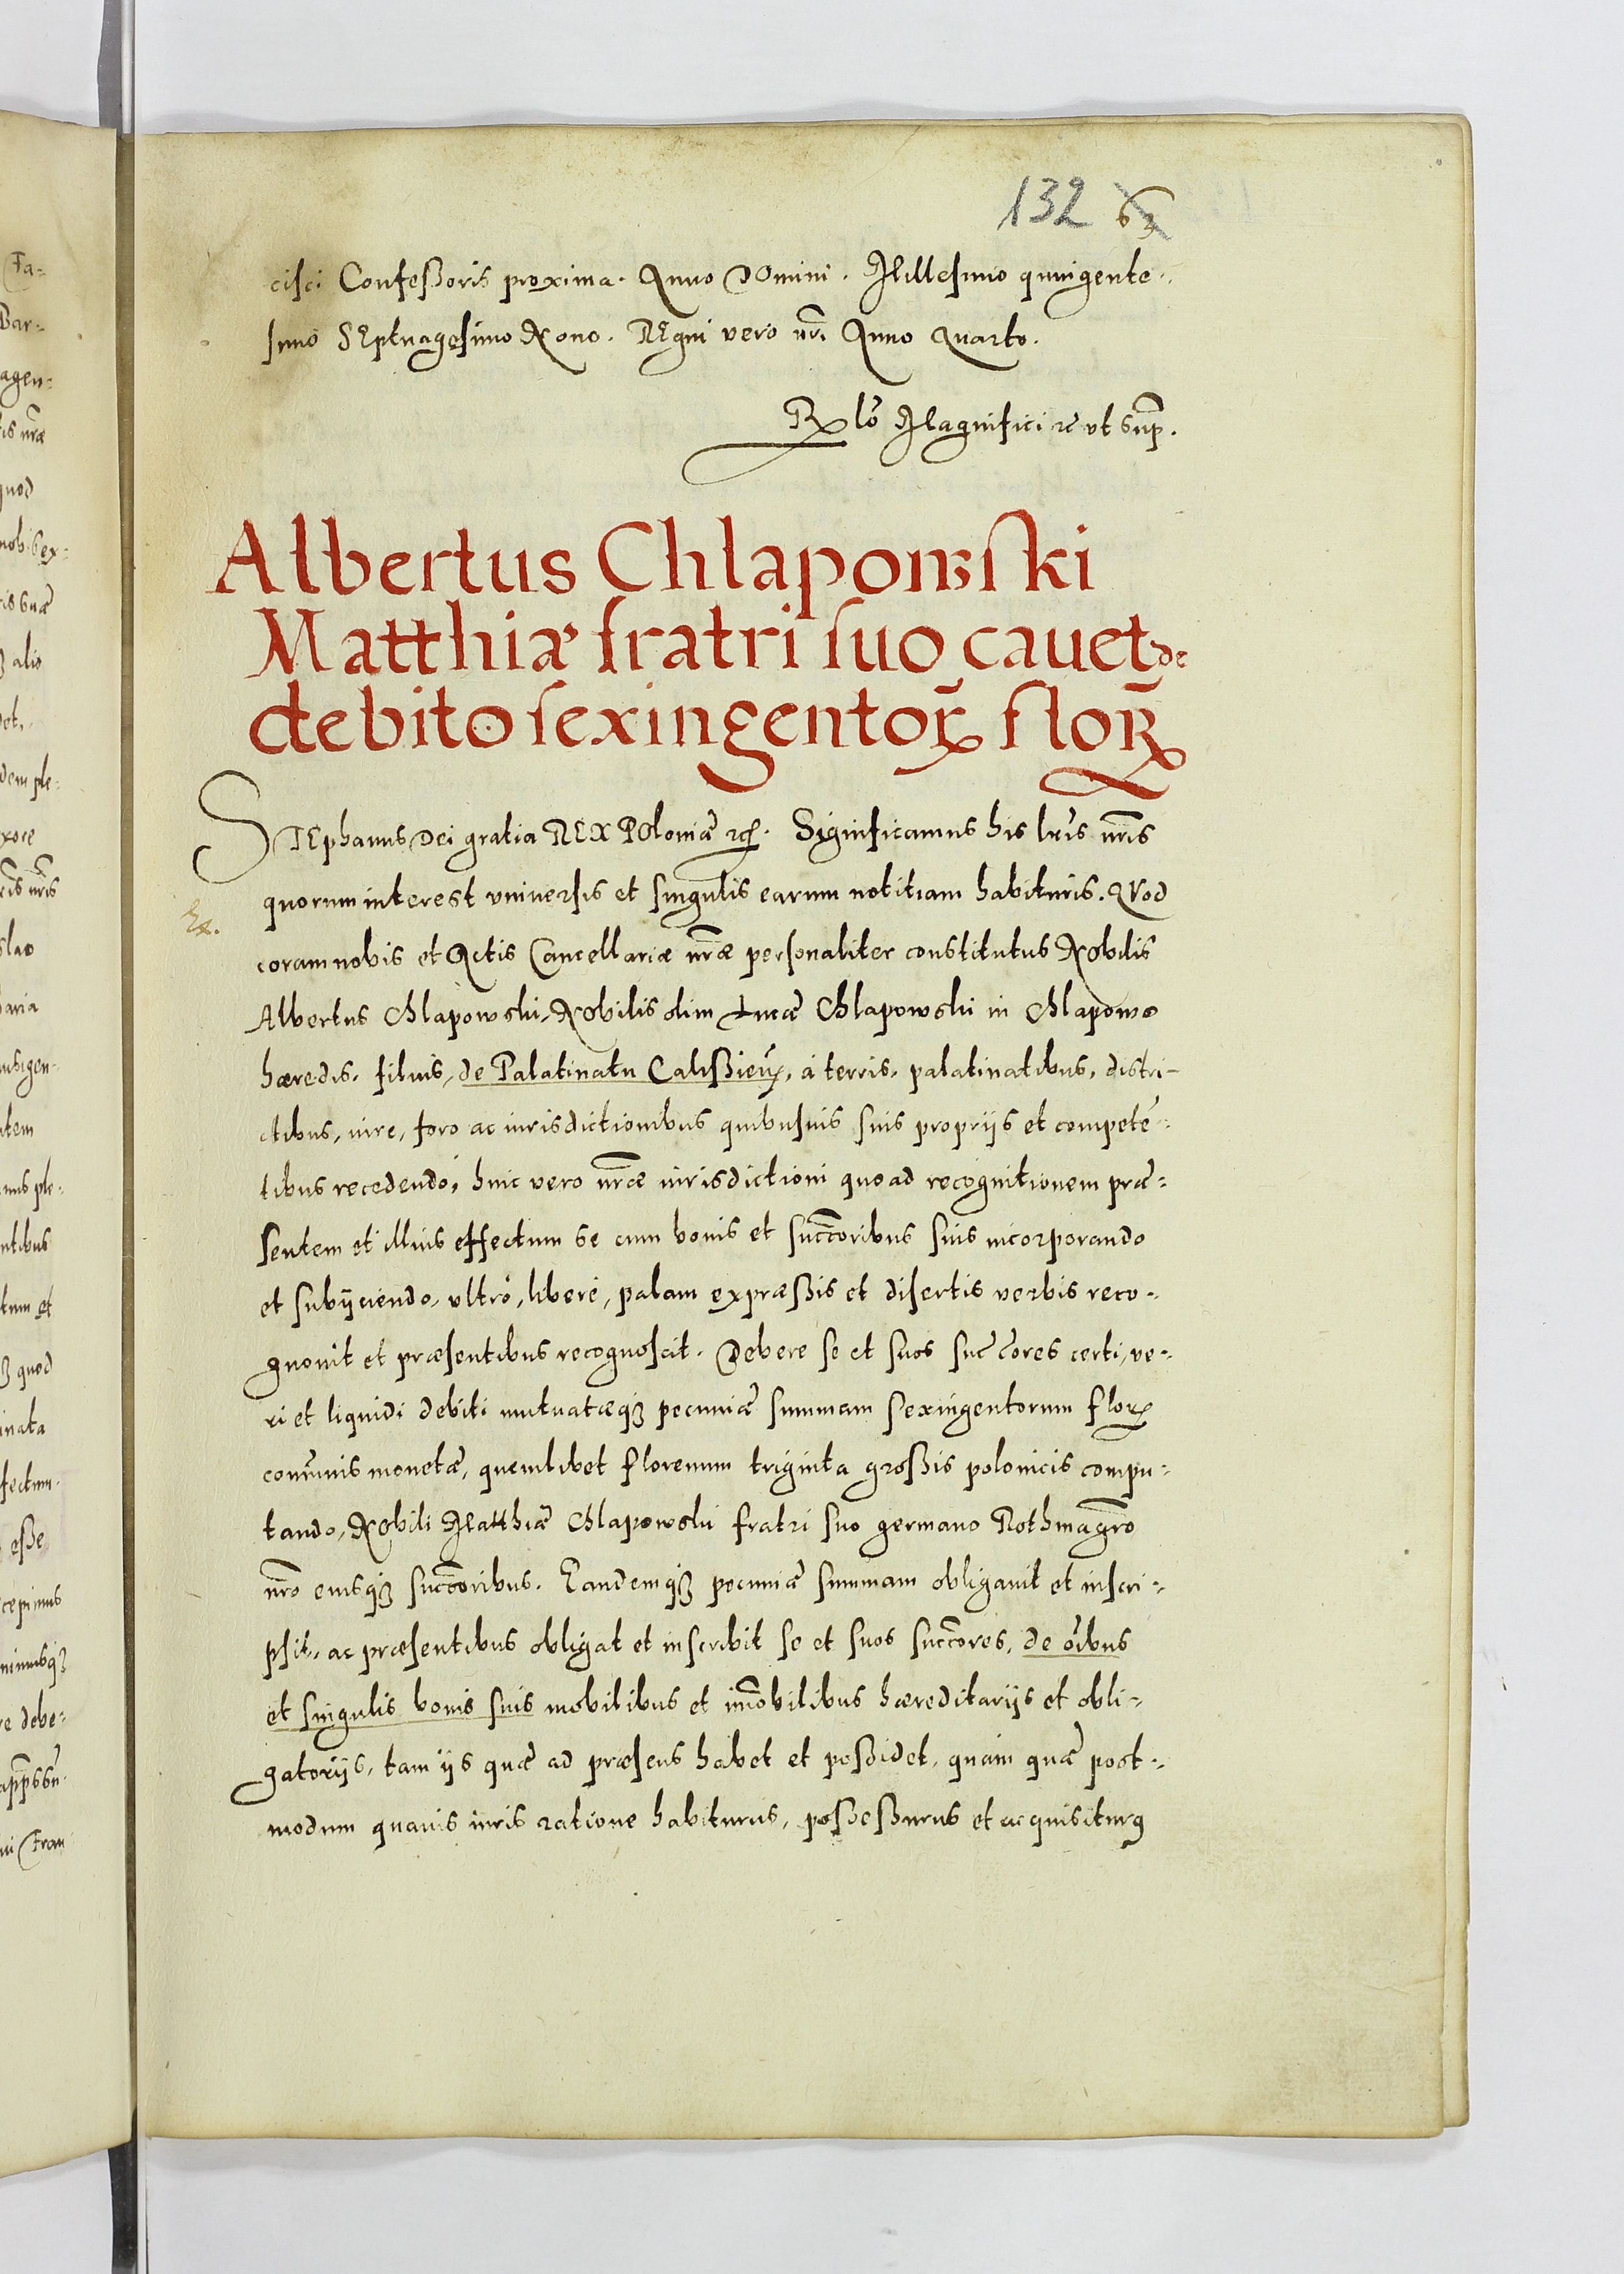 132 63
cisci Confeßoris proxima. Anno DOmini. Millesimo quingente-
simo SEptuagesimo Nono. REgni vero nri Anno Quarto.
Rlō Magnifici ut sup.
Albertus Chlapowski
Matthiæ fratri suo cavet de
debito sexingentoꝝ floꝝ
STEphanus Dei gratia REX POloniæ ꝛc. Significamus his lrīs nrīs
quorum interest vniuersis et singulis earum notitiam habituris. QVod
Ex.
coram nobis et Actis Cancellariæ nrāe personaliter constitutus Nobilis
Albertus Chlapowski, Nobilis olim Lucæ Chlapowski in Chlapowo
hæredis. filius, de Palatinatu Calißieñ, à terris, palatinatibus, distri-
ctibus, iure, foro ac iurisdictionibus quibusuis suis proprijs et competē-
tibus recedendo, huic vero nrāe iurisdictioni quoad recognitionem præ-
sentem et illius effectum se cum bonis et succōribus suis incorporando
et subijciendo, vltrò, liberè, palam expræßis et disertis verbis reco-
gnouit et præsentibus recognoscit. Debere se et suos succōres certi, ve-
ri et liquidi debiti mutuatæqꝫ pecuniæ summam sexingentorum floꝝ
cōmunis monetæ, quemlibet florenum triginta großis polonicis compu-
tando, Nobili Matthiæ Chlapowski fratri suo germano Rothmagrō
nrō eiusqꝫ succōribus. Eandemqꝫ pecuniæ summam obligauit et inscri-
psit, ac præsentibus obligat et inscribit se et suos succōres, de oībus
et singulis bonis suis mobilibus et imōbilibus hæreditarijs et obli-
gatorijs, tam ijs quæ ad præsens habet et poßidet, quam quæ post-
modum quauis iuris ratione habiturus, poßeßurus et acquisiturꝰ